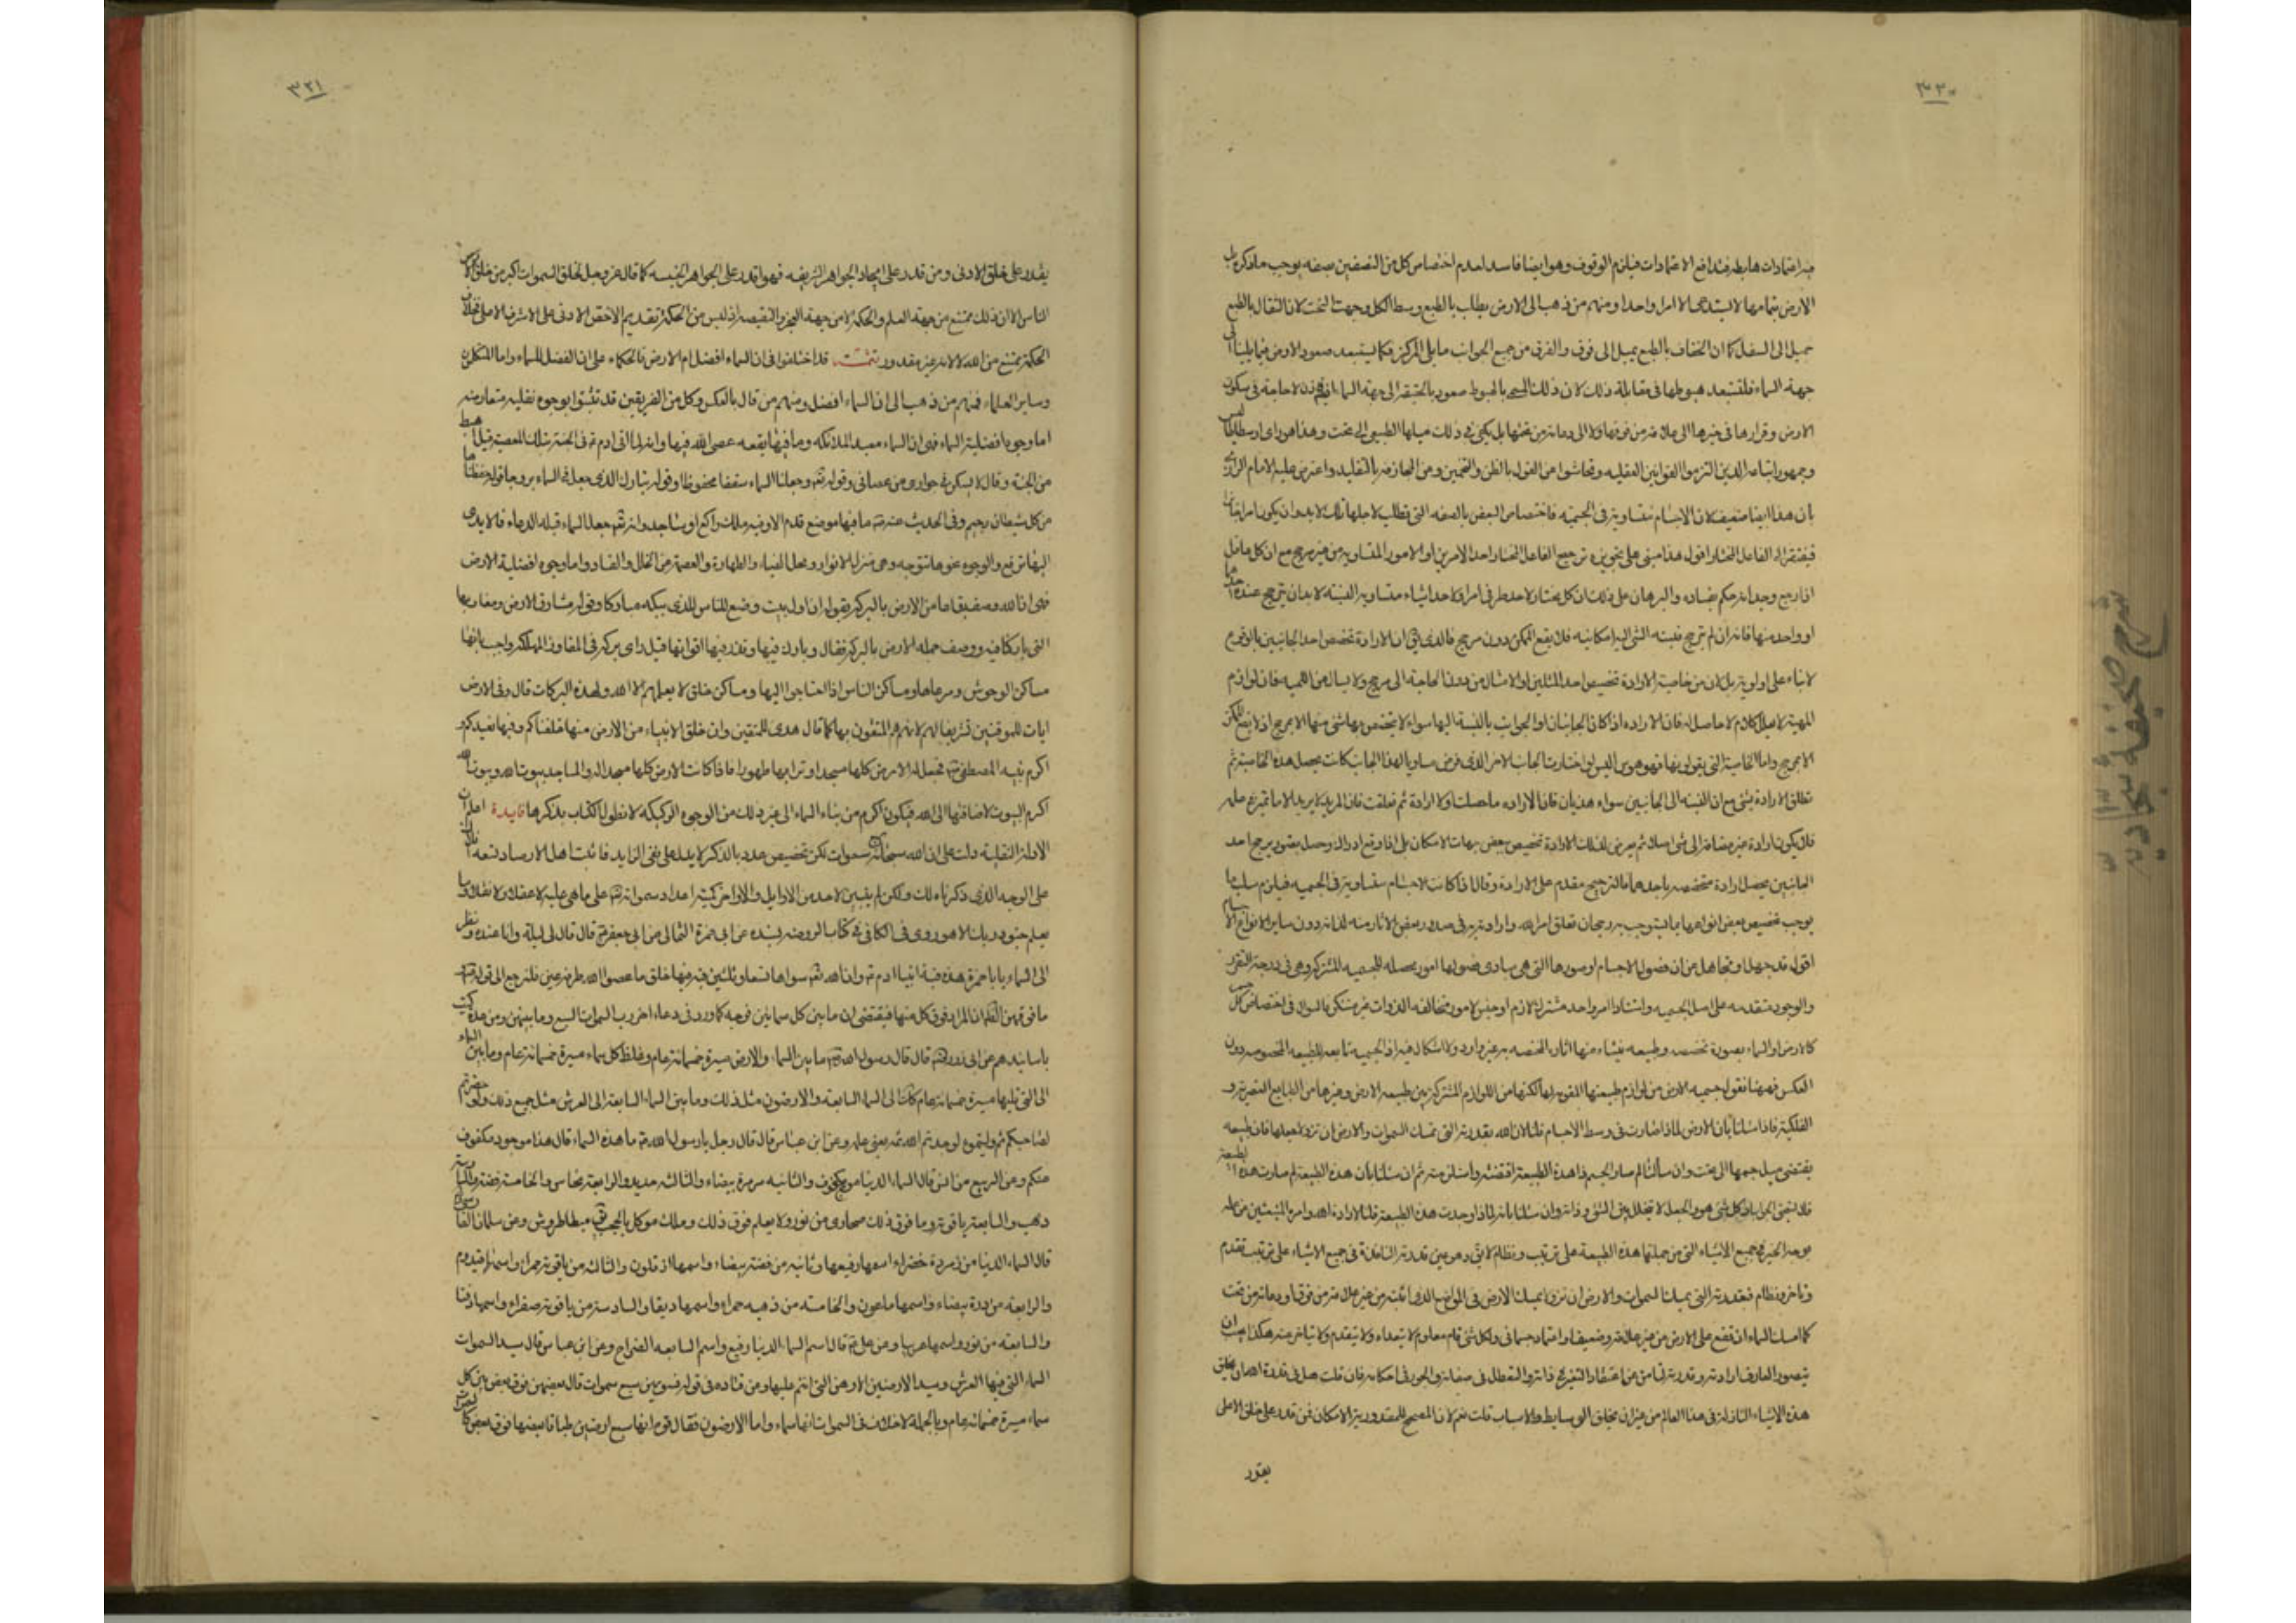 ٣٢٠
غير اعتمادات هابطه فيتدافع الاعتمادات فيلزم الوقوف وهو ايضا فاسد لعدم اختصاص كل من النصفين بصفه يوجب ما ذكره
الارض بتمامها لا يستدعى الا امرا واحدا ومنهم من ذهب الى الارض يطلب بالطبع وسط الكل وجهت التحت لان الثقال بالطبع
تميل الى السفل كما ان الخفاف بالطبع يميل الى فوق والفرق من جميع الجوانب ما يلى المركز فكما يستبعد صعود الارض فيما يلينا الى
جهة السماء فلتستبعد هبوطها فى مقابلة ذلك لان ذلك المسمى بالهبوط صعود بالحقيقة الى جهة السماء فاذن لا حاجة فى سكون
الارض وقرارها فى حيزها الى علاقة من فوقها ولا الى دعامة من تحتها بل يكفى فى ذلك ميلها الطبيعى الى تحت وهذا هو راى ارسطاطاليس
وجمهور اتباعه الذين التزموا القوانين العقليه وتحاشوا من القول بالظن والتخمين ومن المجازفه بالتقليد واعترض عليه الامام الرازى
بان هذا ايضا ضعيف لان الاجسام متساوية فى الجسميه فاختصاص البعض بالصفه التى تطلب لاجلها تلك لابد وان يكون امرا
فيفتقر الى الفاعل المختار اقول هذا مبنى على تجويزه ترجيح الفاعل المختار احد الامرين او الامور المتساويه من غير مرجح مع ان كل عاقل
اذا رجع وجدانه حكم بفساده والبرهان على ذلك ان كل مختار لاحد طرفى امر او لاحد اشياء متساويه النسبة لابد ان يترجح عنده احدهما
او واحد منها فانه ان لم يترجح فنسبة الشى اليه امكانيه فلا يقع الممكن دون مرجح فالذى يق ان الارادة تخصص احد الجانبين بالوقوع
لا بناء على اولوية بل لان من خاصية الارادة تخصيص احد المثلين او الامثال من دون الحاجة الى مرجح ولا يسال عن اللميه فان لوازم
المهية لا تعلل كلام لا حاصل له فان الاراده اذا كان الجانبان او الجوانب بالنسبة اليها سواء لا يتخصص بها شئ منها الا بمرجح اذ لا يقع الممكن
الا بمرجح واما الخاصية التى يقولونها فهو هوس اليس لو اختارت الجانب الاخر الذى فرض مساويا لهذا الجانب كانت يحصل هذه الخاصية ثم
تعلق الارادة بشئ مع ان النسبة الى الجانبين سواء هذيان فان الاراده ما حصلت اولا ارادة ثم تعلقت فان المريد لا يريد الا ما تميز
فلا يكون ارادة غير مضافة الى شئ اصلا ثم يعرض لتلك الارادة تخصيص بعض جهات الامكان بلى اذا وقع ادراك وحصل تصور يرجح احد
الجانبين يحصل ارادة متخصصه باحدهما فالترجيح مقدم على الارادة وقال اذا كانت الاجسام متساوية فى الجسميه فيلزم
يوجب تخصيص بعض انواعها بما يستوجب به رجحان تعلق امر الله وارادته به فى صدور بعض الاثار منه لذاته دون ساير الانواع الاجسام
اقول قد جهل او تجاهل عن ان فصول الاجسام او صورها التى هى مبادى فصولها امور محصله للجسميه المشتركة وهى فى درجة التقرر
والوجود متقدمه على اصل الجسميه واستناد امر واحد مشترك لازم او جنس لامور متخالفه الذوات غير مستنكر فالسؤال فى اختصاص كل جسم
كالارض او السماء بصورة تخصصه وطبيعه ينشاء منها اثاره المختصه به غير وارد ولا اشكال فيه اذ الجسميه تابعه للطبيعه المخصوصه دون
العكس فههنا نقول جسميه الارض من لوازم طبيعتها المقومه لها لكنها من اللوازم المشتركة بين طبيعه الارض وغيرها من الطبايع العنصرية و
الفلكيه فاذا سئلنا بان الارض لماذا صارت فى وسط الاجسام قلنا لان الله بقدرته التى تمسك السموات والارض ان تزولا جعلها فان طبيعه
يقتضى ميل جسمها الى تحت وان سالت لم صار الجسم ذا هذه الطبيعة اقتضته واستلزمته ثم ان سئلنا بان هذه الطبيعة لم صارت هذه الطبيعة
فلا يقتضى الجواب لان كل شئ هو هو والجعل لا يتخلل بين الشئ وذاته وان سئلنا بانه لماذا وجدت هذه الطبيعة قلنا لارادة الله وامره المنبعثين من علمه
بوجه الخير فى جميع الاشياء التى من جملتها هذه الطبيعة على ترتيب ونظام لايق وهو عين قدرته النافذة فى جميع الاشياء على ترتيب تقدم
وتاخر ونظام فبقدرته التى يمسك السموات والارض ان تزولا يمسك الارض فى الموضع الذى اثبته من غير علاقة من فوق او دعامة من تحت
كما امسك السماء ان تقع على الارض من غير علاقة وضعيف واعتماد جسمانى ولكل شئ مقام معلوم لا يتعداه ولا يتقدم ولا يتاخر عنه هكذا يجب ان
يتصور العارف ارادته وقدرته تعالى من غير اعتقاد التغير فى ذاته والتعطل فى صفاته والجور فى احكامه فان قلت هل فى قدرة الله ان يخلق
هذه الاشياء النازلة فى هذا العالم من غير ان يخلق الوسايط والاسباب قلت نعم لان المصحح للمقدورية الامكان فمن قدر على خلق الاعلى
يقدر
٣٢١
يقدر على خلق الادنى ومن قدر على ايجاد الجواهر الشريفه فهو اقدر على الجواهر الخسيسه كما قال عز وجل لخلق السموات اكبر من خلق
الناس الا ان ذلك ممتنع من جهة العلم والحكمة لا من جهة العجز والنقيصه اذ ليس من الحكمة تقديم الاخس الادنى على الاشرف الاعلى فخلاف
الحكمة يمتنع من الله لا لانه غير مقدور تتمـــة قد اختلفوا فى ان السماء افضل ام الارض فالحكماء على ان الفضل للسماء واما المتكلمون
وساير العلماء فمنهم من ذهب الى ان السماء افضل ومنهم من قال بالعكس وكل من الفريقين قد تشبثوا بوجوه نقليه متعارضه
اما وجوه افضلية السماء فهى ان السماء معبد الملائكه وما فيها بقعه عصى الله فيها وانه لما اتى ادم ع فى الجنة بتلك المعصية قيل اهبط
من الجنة وقال لا يسكن فى جوارى من عصانى وقوله تعـ وجعلنا السماء سقفا محفوظا وقوله تبارك الذى جعل فى السماء بروجا قوله وحفظناها
من كل شيطان رجيم وفى الحديث عنه ص ما فيها موضع قدم الا وفيه ملك راكع او ساجد وانه تعـ جعل السماء قبله الدعاء فالايدى
اليها ترفع والوجوه نحوها تتوجه وهى منزل الانوار ومحل الضياء والطهارة والعصمة من الخلل والفساد واما وجوه افضلية الارض
فهى ان الله وصف بقاعا من الارض بالبركة بقوله ان اول بيت وضع للناس للذى ببكه مباركا وقوله مشارق الارض ومغاربها
التى باركنا فيه ووصف جمله الارض بالبركة فقال وبارك فيها وقدر فيها اقواتها قيل واى بركة فى المفاوز المهلكه واجيب بانها
مساكن الوحوش ومرعاها ومساكن الناس اذا احتاجوا اليها ومساكن خلق لا يعلمهم الا الله ولهذه البركات قال وفى الارض
ايات للموقنين تشريفا لهم لانهم هم المنتفعون بها كما قال هدى للمتقين وان خلق الانبياء من الارض منها خلقناكم وفيها نعيدكم و
اكرم نبيه المصطفى ص فجعل له الارض كلها مسجدا وترابها طهورا فاذا كانت الارض كلها مسجدا له والمساجد بيوت الله وبيوت الله
اكرم البيوت لاضافتها الى الله فيكون اكرم من بناء السماء الى غير ذلك من الوجوه الركيكه لا نطول الكتاب بذكرها فايدة اعلم ان
الادلة النقلية دلت على ان الله سبحانه سموات لكن تخصيص عدد بالذكر لا يدل على نفى الزايد فاثبت اهل الارصاد تسعه افلاك
على الوجه الذى ذكرناه لك ولكن لم يتبين لاحد من الاوايل والاواخر كمية اعداد سمواته تعـ على ما هى عليه لا عقلا ولا نقلا وما
يعلم جنود ربك الا هو روى فى الكافى فى كتاب الروضه بسنده عن ابى حمزة الثمالى عن ابى جعفر ع قال قال لى ليلة وانا عنده ونظر
الى السماء يا باحمزة هذه قبة ابينا ادم ع وان لله تعـ سواها تسعا وثلثين قبه فيها خلق ما عصوا الله طرفة عين فلنرجع الى قوله
ما فوقهن الظ ان المراد فوق كل منها فيقتضى ان ما بين كل سمائين فرجه كما ورد فى دعاء اخر رب السموات السبع وما بينهن ومن عدة كتب
باسانيدهم عن ابى ذر رض قال قال رسول الله ص ما بين السماء والارض مسيرة خمسمائة عام وغلظ كل سماء مسيرة خمسمائة عام وما بين السماء
الى التى تليها مسيرة خمسمائة عام كذلك الى السماء السابعة والارضون مثل ذلك وما بين السماء السابعة الى العرش مثل جميع ذلك ولو حفرتم
لصاحبكم ثم دليتموه لوجدتم الله ثمه يعنى علمه وعن ابن عباس قال قال رجل يا رسول الله ص ما هذه السماء قال هذا موج مكفوف
عنكم وعن الربيع بن انس قال السماء الدنيا موج مكفوف والثانيه مرمرة بيضاء والثالثه حديد والرابعة نحاس والخامسة فضة والسادسة
ذهب والسابعة ياقوتة وما فوق ذلك صحارى من نور ولا يعلم فوق ذلك وملك موكل بالحجب يق ميطاطروش وعن سلمان الفارسى
قال السماء الدنيا من زمردة خضراء اسمها رفيعها وثانيه من فضة بيضاء واسمها ازقلون والثالثه من ياقوته حمراء واسمها قيدوم
والرابعه من درة بيضاء واسمها ماعون والخامسه من ذهبه حمراء واسمها ديقا والسادسة من ياقوته صفراء واسمها دفنا
والسابعه من نور واسمها عريبا وعن على ع قال اسم السماء الدنيا رفيع واسم السابعه الضراح وعن ابن عباس قال سيد السموات
السماء التى فيها العرش وسيد الارضين الارض التى انتم عليها وعن قتاده فى قوله فسويهن سبع سموات قال بعضهن فوق بعض بين كل
سماء مسيرة خمسمائه عام وبالجملة لا خلاف فى السموات انها سماء واما الارضون فقال قوم انها سبع ارضين طباقا بعضها فوق بعض
شرح صحيفه سجاديه